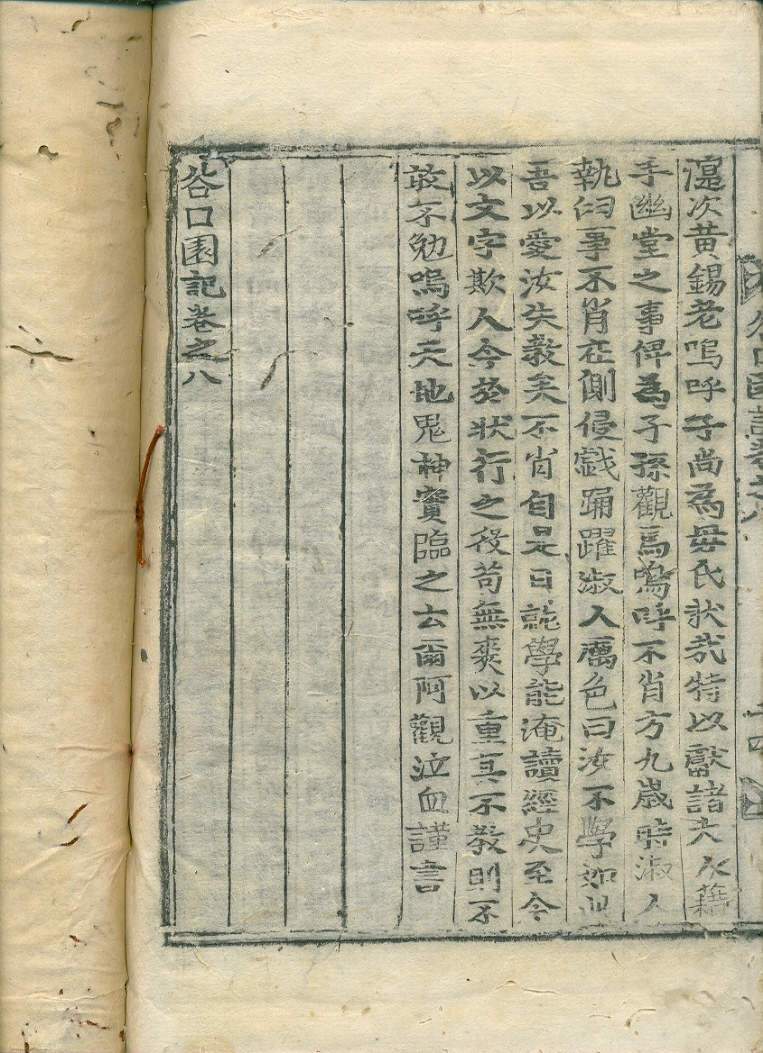 谷口園記卷之八
瀛次黃錫老嗚呼子尚爲毋氏狀哉特以獻諸大人籍
手幽堂之事俾爲子孫觀焉嗚呼不肖方九歲時淑人
執臼事不肖在側侵戱踊躍淑人厲色曰汝不學如此
吾以愛汝失敎矣不肖自是日就學能淹讀經史至今
以文字欺人今於狀行之役苟無衷以重其不敎則不
敢不勉嗚呼天地鬼神實臨之云爾阿觀泣血謹言
谷口園記卷之八